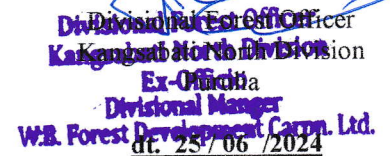 Divisional Forest Officer
Kangsabati North Division
Purulia
Divisional Forest Officer
Kangsabati North Division
Ex-Officio
Divisional Manger
W.B. Forest Development Carpn. Ltd.
dt. 25/06 /2024